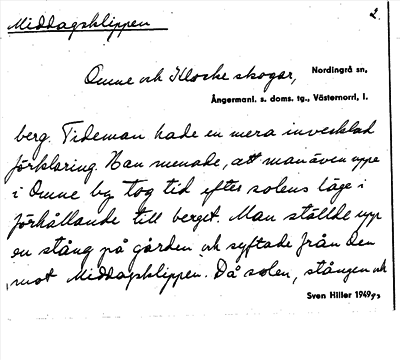 Middagsklippen
2.
Omne och Klocke skogar, Nordingrå sn,
Ångermanl. s. doms. tg., Västernorrl, l.
berg. Tideman hade en mera invecklad
förklaring. Han menade, att man även uppe
i Omne by tog tid efter solens läge i
förhållande till berget. Man ställde upp
en stång på gården och syftade från den
mot Middagsklippen. Då solen, stången och
Sven Hiller 1949